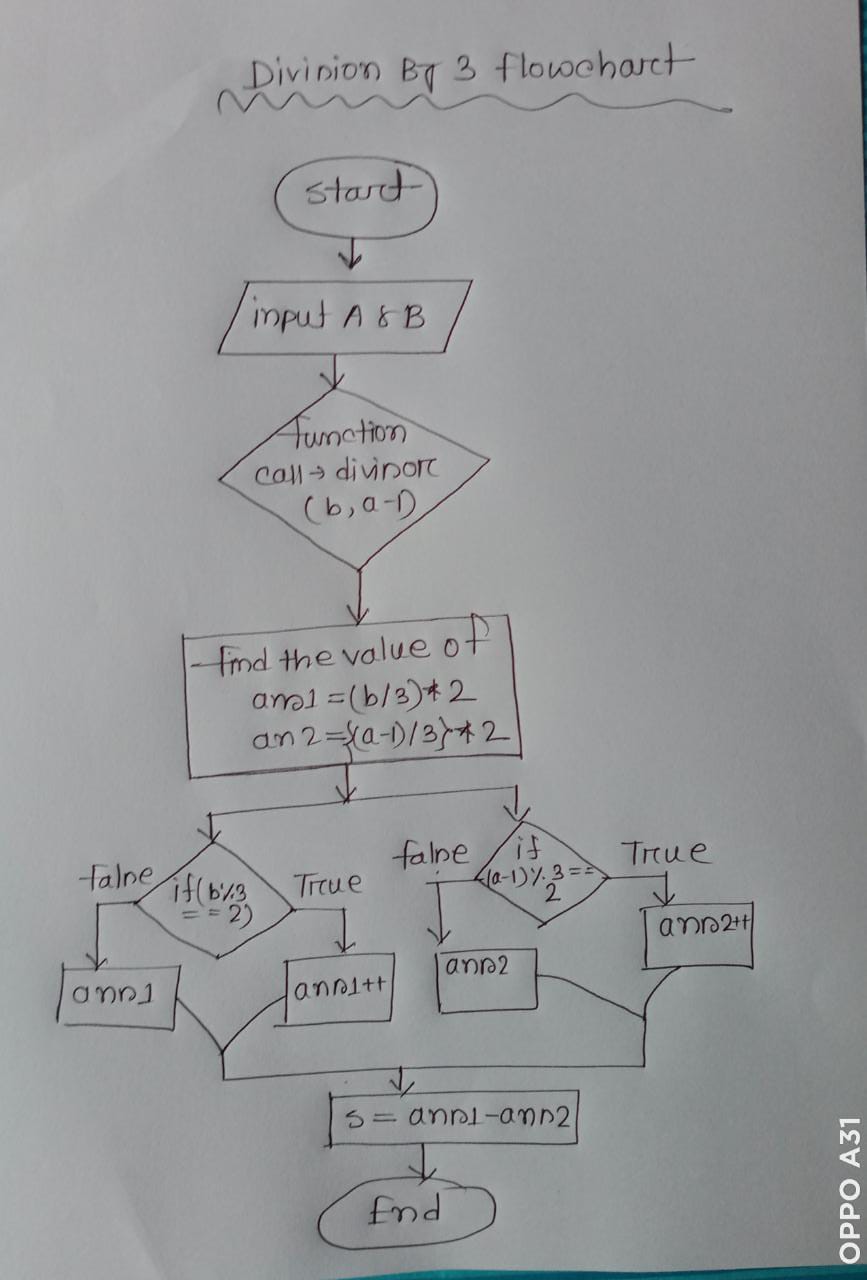 Division By 3 flowchart
start
input A & B
function
call → divisor
(b, a-1)
find the value of
ans1 = (b/3)* 2
an2 = {(a-1)/3}* 2
false
if(b%3
== 2)
True
false
if
(a-1)%.3==
2
True
ans1
ans1++
ans2
ans2++
s = ans1-ans2
End
OPPO A31